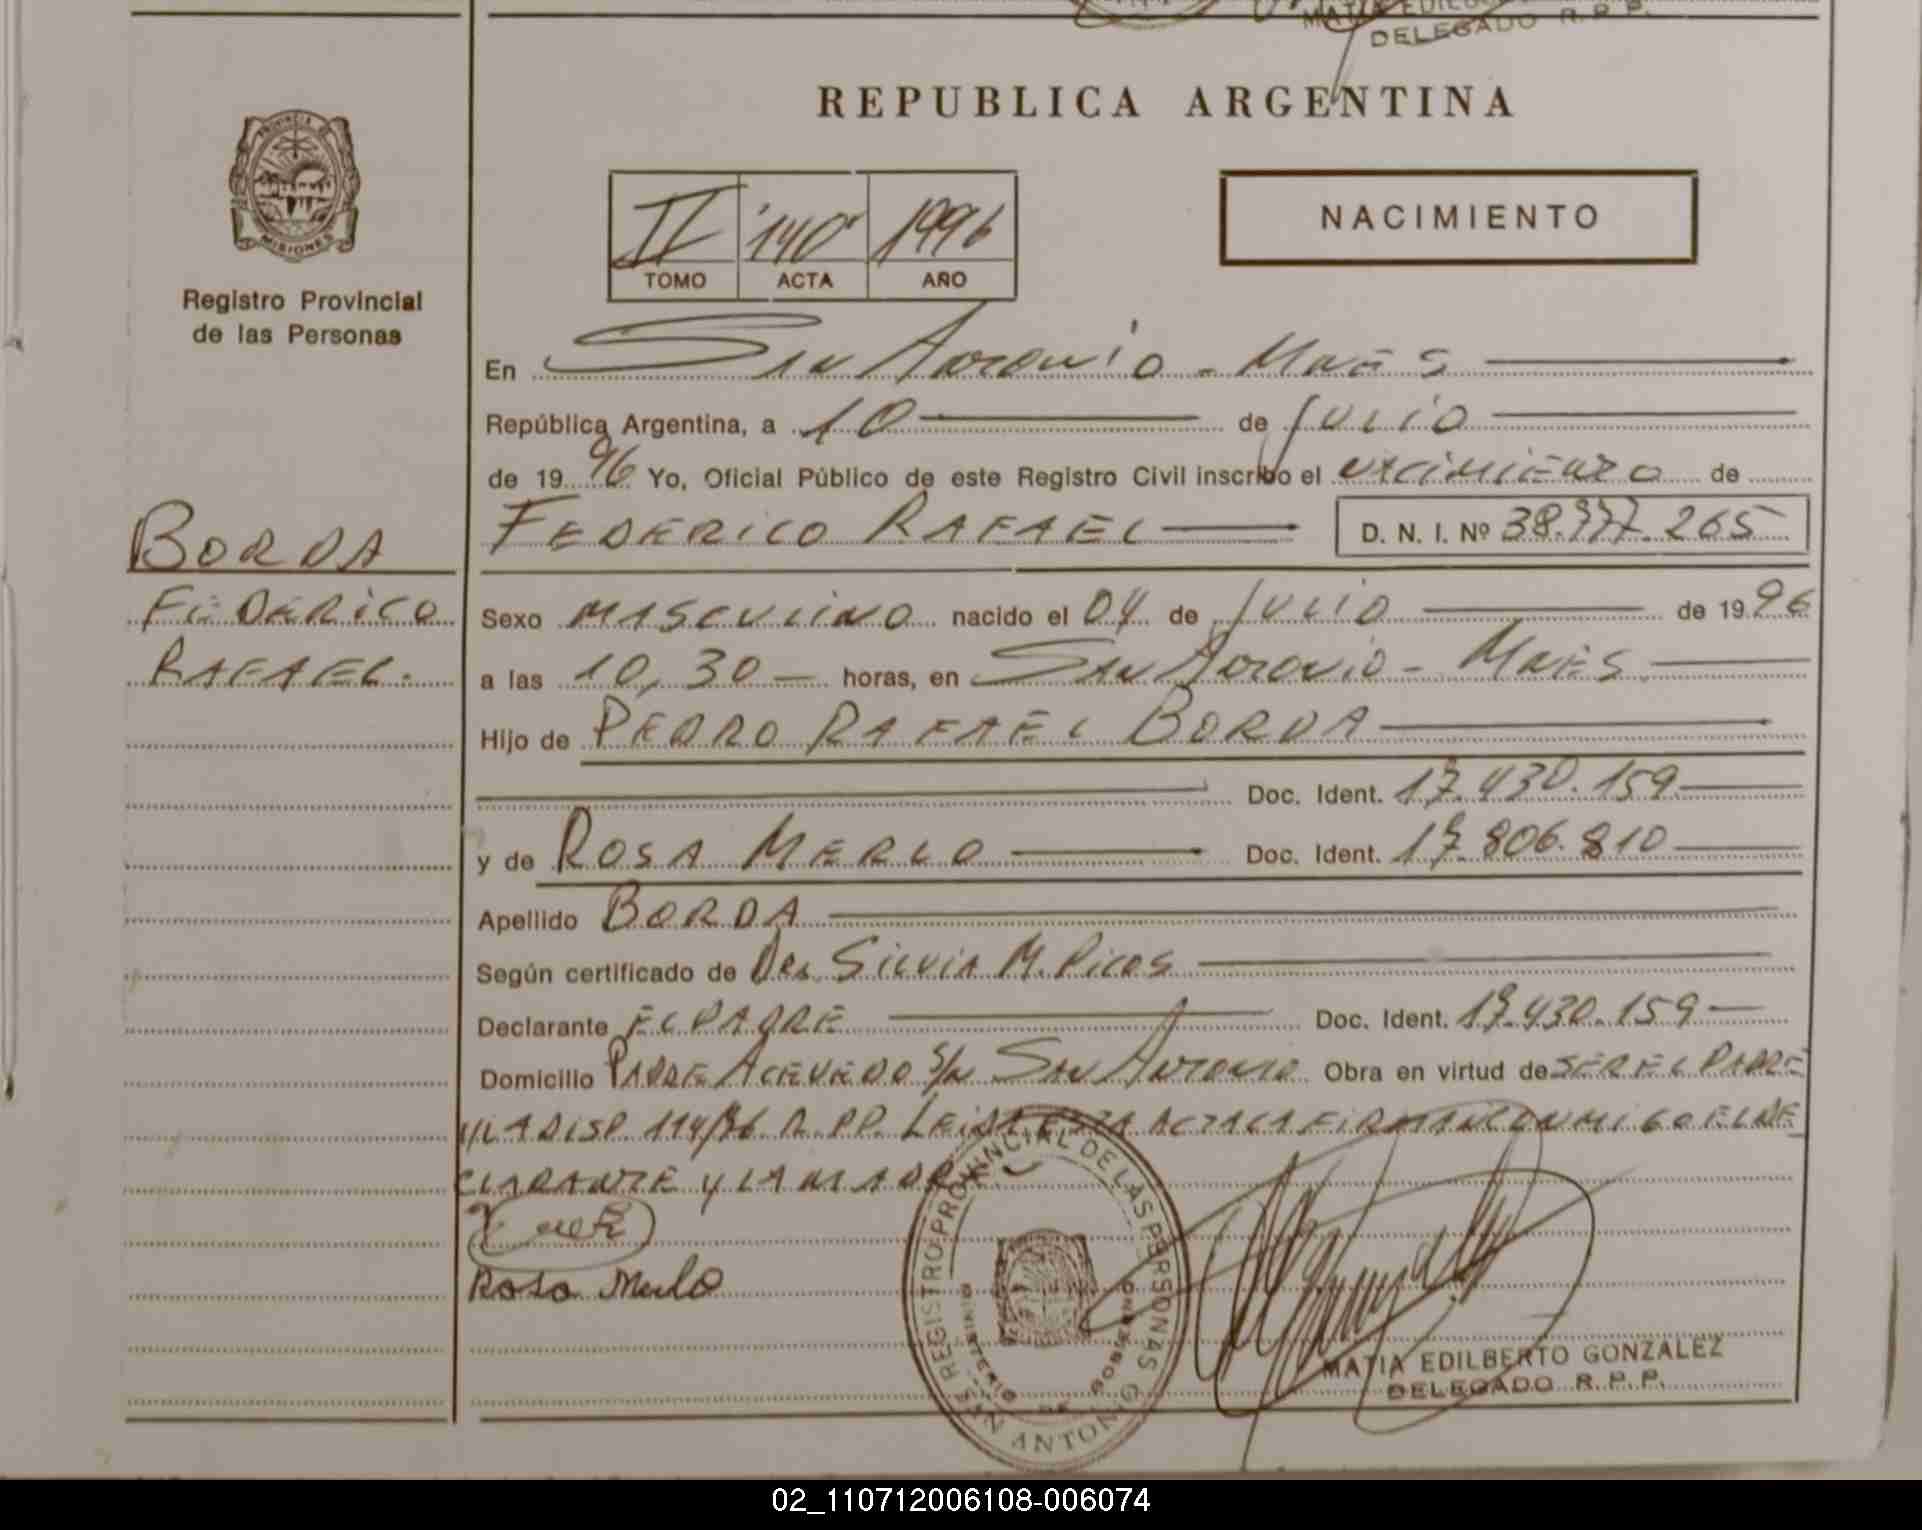 MATIA EDILB
DELEGADO R. P. P.
REPUBLICA ARGENTINA
PROVINCIA DE
MISIONES
Registro Provincial
de las Personas
II 140 1996
TOMO ACTA AÑO
NACIMIENTO
En San Antonio - Mnes
República Argentina, a 10 de Julio
de 1996 Yo, Oficial Público de este Registro Civil inscribo el nacimiento de
BORDA
FEDERICO
RAFAEL.
FEDERICO RAFAEL D. N. I. Nº 38.777.265
Sexo MASCULINO nacido el 04 de Julio de 1996
a las 10,30 horas, en San Antonio - Mnes
Hijo de PEDRO RAFAEL BORDA
Doc. Ident. 17.430.159
y de ROSA MERLO Doc. Ident. 17.806.810
Apellido BORDA
Según certificado de Dra. Silvia M. Picos
Declarante EL PADRE Doc. Ident. 17.430.159
Domicilio PADRE ACEVEDO S/N SAN ANTONIO Obra en virtud de SER EL PADRE
Y LA DISP. 114/96 R.P.P. LEIDA ESTA ACTA LA FIRMAN CONMIGO EL DE
CLARANTE Y LA MADRE
Rosa Merlo
REGISTRO PROVINCIAL DE LAS PERSONAS
MINISTERIO DE GOBIERNO
SAN ANTONIO
MATIA EDILBERTO GONZALEZ
DELEGADO R. P. P.
02_110712006108-006074